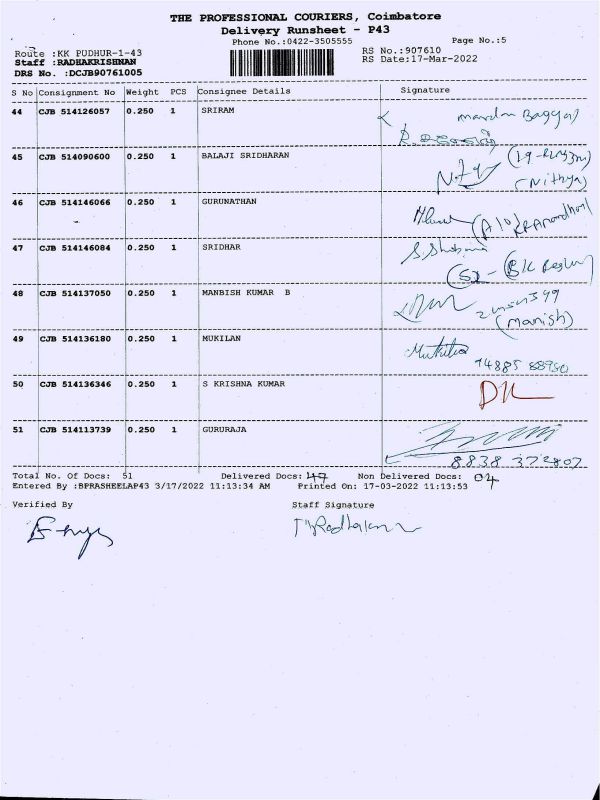 THE PROFESSIONAL COURIERS, Coimbatore
Delivery Runsheet - P43
Phone No.:0422-3505555
Page No.:5
Route :KK PUDHUR-1-43
RS No.:907610
Staff :RADHAKRISHNAN
RS Date:17-Mar-2022
DRS No. :DCJB90761005
S No Consignment No Weight PCS Consignee Details Signature
44 CJB 514126057 0.250 1 SRIRAM
45 CJB 514090600 0.250 1 BALAJI SRIDHARAN
(Nithya)
46 CJB 514146066 0.250 1 GURUNATHAN
47 CJB 514146084 0.250 1 SRIDHAR
48 CJB 514137050 0.250 1 MANBISH KUMAR B
(manish)
49 CJB 514136180 0.250 1 MUKILAN
Mukilan
50 CJB 514136346 0.250 1 S KRISHNA KUMAR
51 CJB 514113739 0.250 1 GURURAJA
8838 372807
Total No. Of Docs: 51 Delivered Docs: 47 Non Delivered Docs: 04
Entered By :BPRASHEELAP43 3/17/2022 11:13:34 AM Printed On: 17-03-2022 11:13:53
Verified By Staff Signature